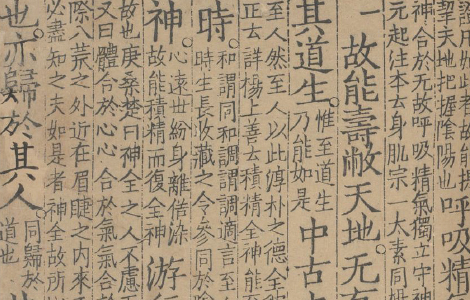 挈天地把握陰陽也呼吸精
神合於无故呼吸精氣獨立守神
元起注本云身肌宗一太素同楊
一故能壽敝天地无有
其道生。惟至道生
乃能如是中古
至人然至人以此淳朴之德全
正云詳楊上善云積精全神能
時。和謂同和調謂調適言至人
時生長收藏之令參同於陰
神。心遠世紛身離俗染
故能積精而復全神游行
故也庚桑楚曰神全之人不慮
又曰體合於心心合於氣氣合於
際八荒之外近在眉睫之内來
必盡知之夫如是者神全故所
也。亦歸於其人。同歸於
道也